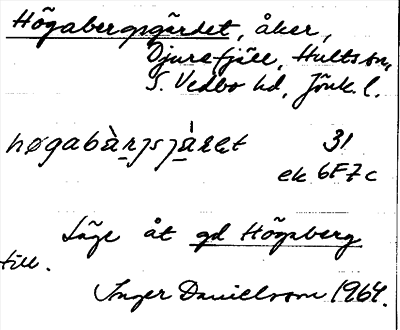 Högabergsgärdet, åker,
Djurefjäll, Hults sn,
S. Vedbo hd, Jönk. l.
høgabàrjsjä̀ret 31
ek 6F7c
Läge åt gd Högaberg
till.
Inger Danielsson 1964.